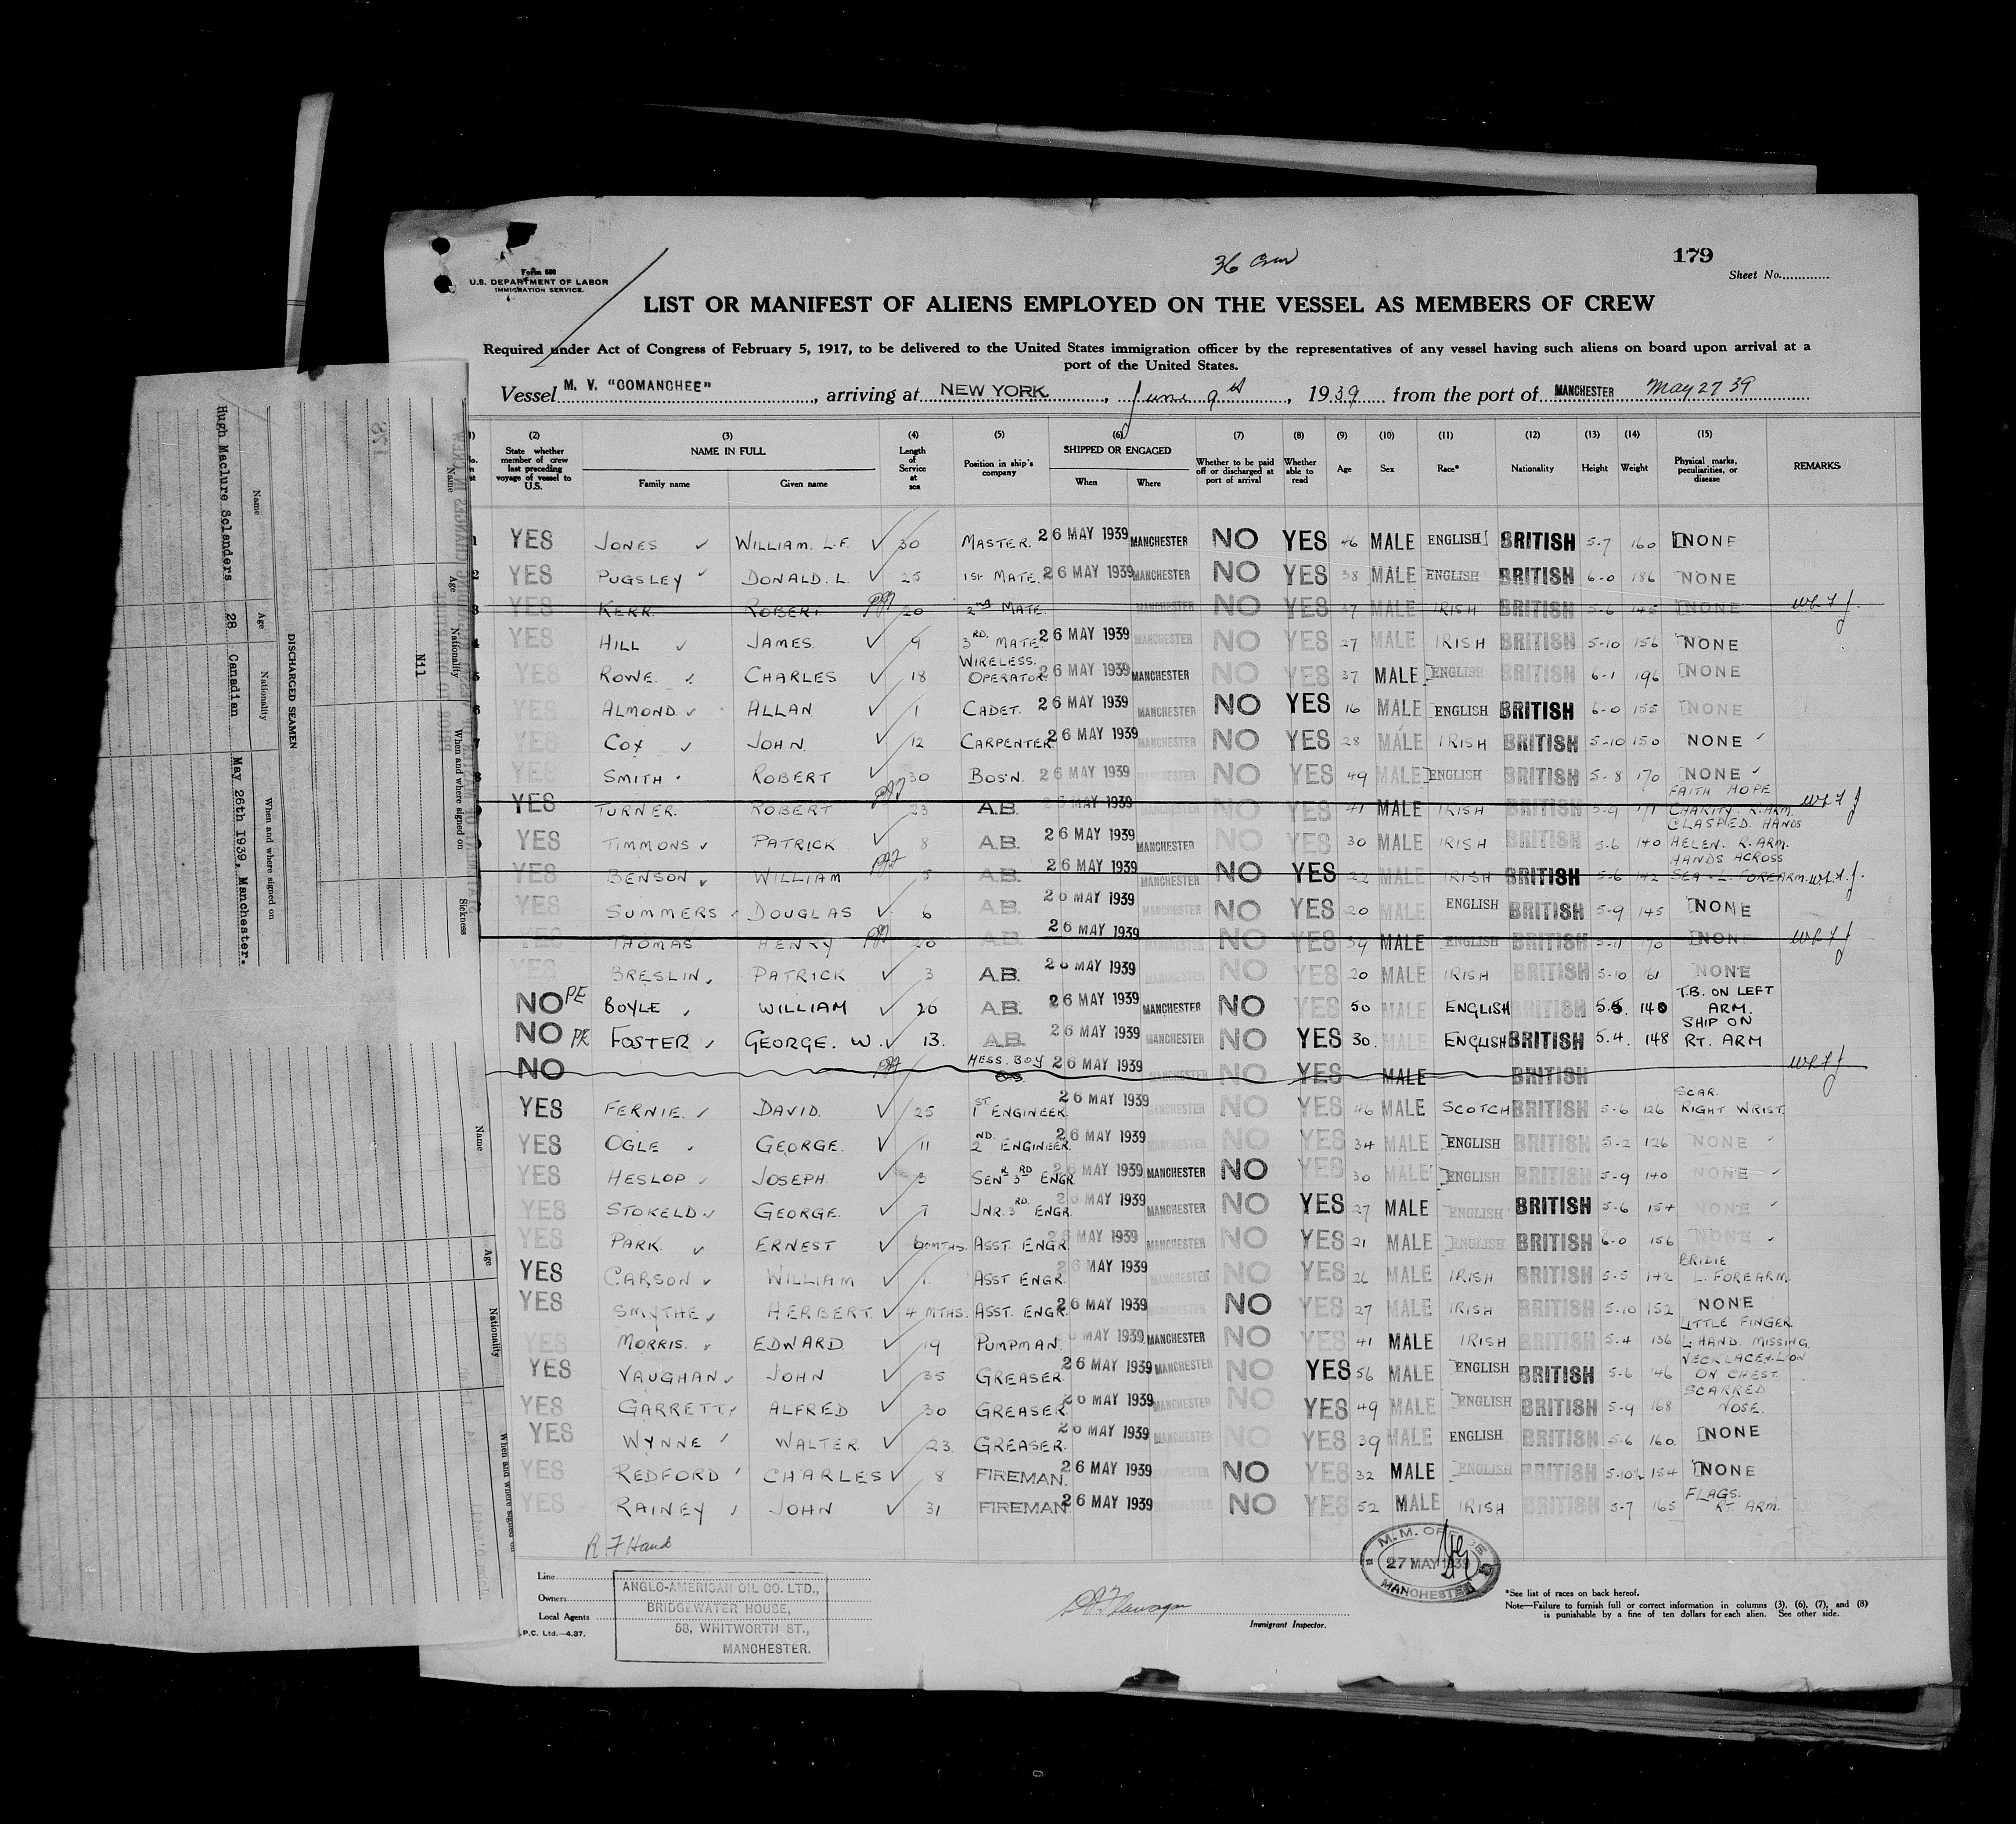 36 Crew
179
Form 680
U.S. DEPARTMENT OF LABOR
IMMIGRATION SERVICE.
Sheet No.
LIST OR MANIFEST OF ALIENS EMPLOYED ON THE VESSEL AS MEMBERS OF CREW
Required under Act of Congress of February 5, 1917, to be delivered to the United States immigration officer by the representatives of any vessel having such aliens on board upon arrival at a
port of the United States.
Vessel M. V. "COMANCHEE", arriving at NEW YORK, June 9th, 1939 from the port of MANCHESTER May 27 39
(2) (3) (4) (5) (6) (7) (8) (9) (10) (11) (12) (13) (14) (15)
State whether member of crew last preceding voyage of vessel to U.S. NAME IN FULL Family name Given name Length of Service at sea Position in ship's company SHIPPED OR ENGAGED When Where Whether to be paid off or discharged at port of arrival Whether able to read Age Sex Race* Nationality Height Weight Physical marks, peculiarities, or disease REMARKS
1 YES JONES WILLIAM. L.F. 30 MASTER. 26 MAY 1939 MANCHESTER NO YES 46 MALE ENGLISH BRITISH 5-7 160 NONE
2 YES PUGSLEY DONALD. L. 25 1ST MATE. 26 MAY 1939 MANCHESTER NO YES 38 MALE ENGLISH BRITISH 6-0 186 NONE
3 YES KERR. ROBERT. 20 2nd MATE. MANCHESTER NO YES 37 MALE IRISH BRITISH 5-6 145 NONE
4 YES HILL JAMES. 9 3RD. MATE 26 MAY 1939 MANCHESTER NO YES 27 MALE IRISH BRITISH 5-10 156 NONE
5 YES ROWE. CHARLES 18 WIRELESS. OPERATOR 26 MAY 1939 MANCHESTER NO YES 37 MALE ENGLISH BRITISH 6-1 196 NONE
6 YES ALMOND ALLAN 1 CADET. 26 MAY 1939 MANCHESTER NO YES 16 MALE ENGLISH BRITISH 6-0 155 NONE
7 YES COX JOHN. 12 CARPENTER. 26 MAY 1939 MANCHESTER NO YES 28 MALE IRISH BRITISH 5-10 150 NONE
8 YES SMITH ROBERT 30 BOS'N. 26 MAY 1939 MANCHESTER NO YES 49 MALE ENGLISH BRITISH 5-8 170 NONE
YES TURNER. ROBERT 23 A.B. 26 MAY 1939 NO YES 41 MALE IRISH BRITISH 5-9 171 FAITH HOPE CHARITY. R. ARM.
YES TIMMONS PATRICK 8 A.B. 26 MAY 1939 MANCHESTER NO YES 30 MALE IRISH BRITISH 5-6 140 CLASPED. HANDS HELEN. R. ARM.
YES BENSON WILLIAM 5 A.B. 26 MAY 1939 MANCHESTER NO YES 22 MALE IRISH BRITISH 5-6 142 HANDS ACROSS SEA. L. FOREARM.
YES SUMMERS DOUGLAS 6 A.B. 26 MAY 1939 MANCHESTER NO YES 20 MALE ENGLISH BRITISH 5-9 145 NONE
YES THOMAS HENRY 20 A.B. 26 MAY 1939 NO YES 39 MALE ENGLISH BRITISH 5-11 170 NONE
YES BRESLIN PATRICK 3 A.B. 26 MAY 1939 MANCHESTER NO YES 20 MALE IRISH BRITISH 5-10 161 NONE
NO PE BOYLE WILLIAM 20 A.B. 26 MAY 1939 MANCHESTER NO YES 50 MALE ENGLISH BRITISH 5.5. 140 T.B. ON LEFT ARM.
NO PE FOSTER GEORGE. W. 13. A.B. 26 MAY 1939 MANCHESTER NO YES 30. MALE ENGLISH BRITISH 5.4. 148 SHIP ON RT. ARM
NO MESS. BOY 26 MAY 1939 MANCHESTER NO YES MALE BRITISH
YES FERNIE. DAVID. 25 1ST ENGINEER. 26 MAY 1939 MANCHESTER NO YES 46 MALE SCOTCH BRITISH 5-6 126 SCAR. RIGHT WRIST.
YES OGLE GEORGE. 11 2ND. ENGINEER. 26 MAY 1939 MANCHESTER NO YES 34 MALE ENGLISH BRITISH 5-2 126 NONE
YES HESLOP JOSEPH. 3 SENR 3RD ENGR. 26 MAY 1939 MANCHESTER NO YES 30 MALE ENGLISH BRITISH 5-9 140 NONE
YES STOKELD GEORGE. 7 JNR. 3RD. ENGR. 26 MAY 1939 MANCHESTER NO YES 27 MALE ENGLISH BRITISH 5-6 154 NONE
YES PARK ERNEST 6 MTHS. ASST. ENGR. 26 MAY 1939 MANCHESTER NO YES 21 MALE ENGLISH BRITISH 6-0 156 NONE
YES CARSON WILLIAM 1. ASST ENGR. 26 MAY 1939 MANCHESTER NO YES 26 MALE IRISH BRITISH 5-5 142 BRIDIE L. FOREARM.
YES SMYTHE HERBERT. 4 MTHS. ASST. ENGR. 26 MAY 1939 MANCHESTER NO YES 27 MALE IRISH BRITISH 5-10 152 NONE
YES MORRIS. EDWARD. 19 PUMPMAN. 26 MAY 1939 MANCHESTER NO YES 41 MALE IRISH BRITISH 5-4 136 LITTLE FINGER L. HAND. MISSING.
YES VAUGHAN JOHN 35 GREASER. 26 MAY 1939 MANCHESTER NO YES 56 MALE ENGLISH BRITISH 5-6 146 NECKLACE & LION ON CHEST.
YES GARRETT ALFRED 30 GREASER 26 MAY 1939 MANCHESTER NO YES 49 MALE ENGLISH BRITISH 5-9 168 SCARRED NOSE.
YES WYNNE WALTER. 23. GREASER. 26 MAY 1939 MANCHESTER NO YES 39 MALE ENGLISH BRITISH 5-6 160. NONE
YES REDFORD CHARLES 8 FIREMAN. 26 MAY 1939 MANCHESTER NO YES 32 MALE ENGLISH BRITISH 5-10½ 154 NONE
YES RAINEY JOHN 31 FIREMAN 26 MAY 1939 MANCHESTER NO YES 52 MALE IRISH BRITISH 5-7 165 FLAGS. RT. ARM.
R. F Hand
Line
Owners
Local Agents
P.C. Ltd.—4.37.
ANGLO-AMERICAN OIL CO. LTD.,
BRIDGEWATER HOUSE,
58, WHITWORTH ST.,
MANCHESTER.
Immigrant Inspector.
M. M. OFFICE
27 MAY 1939
MANCHESTER
*See list of races on back hereof.
Note—Failure to furnish full or correct information in columns (3), (6), (7), and (8)
is punishable by a fine of ten dollars for each alien. See other side.
DISCHARGED SEAMEN
Name Age Nationality When and where signed on
Hugh Maclure Sclanders 28 Canadian May 26th 1939, Manchester.
Name Age Nationality When and where signed on Sickness
Nil
Name Age Nationality When and where signed on